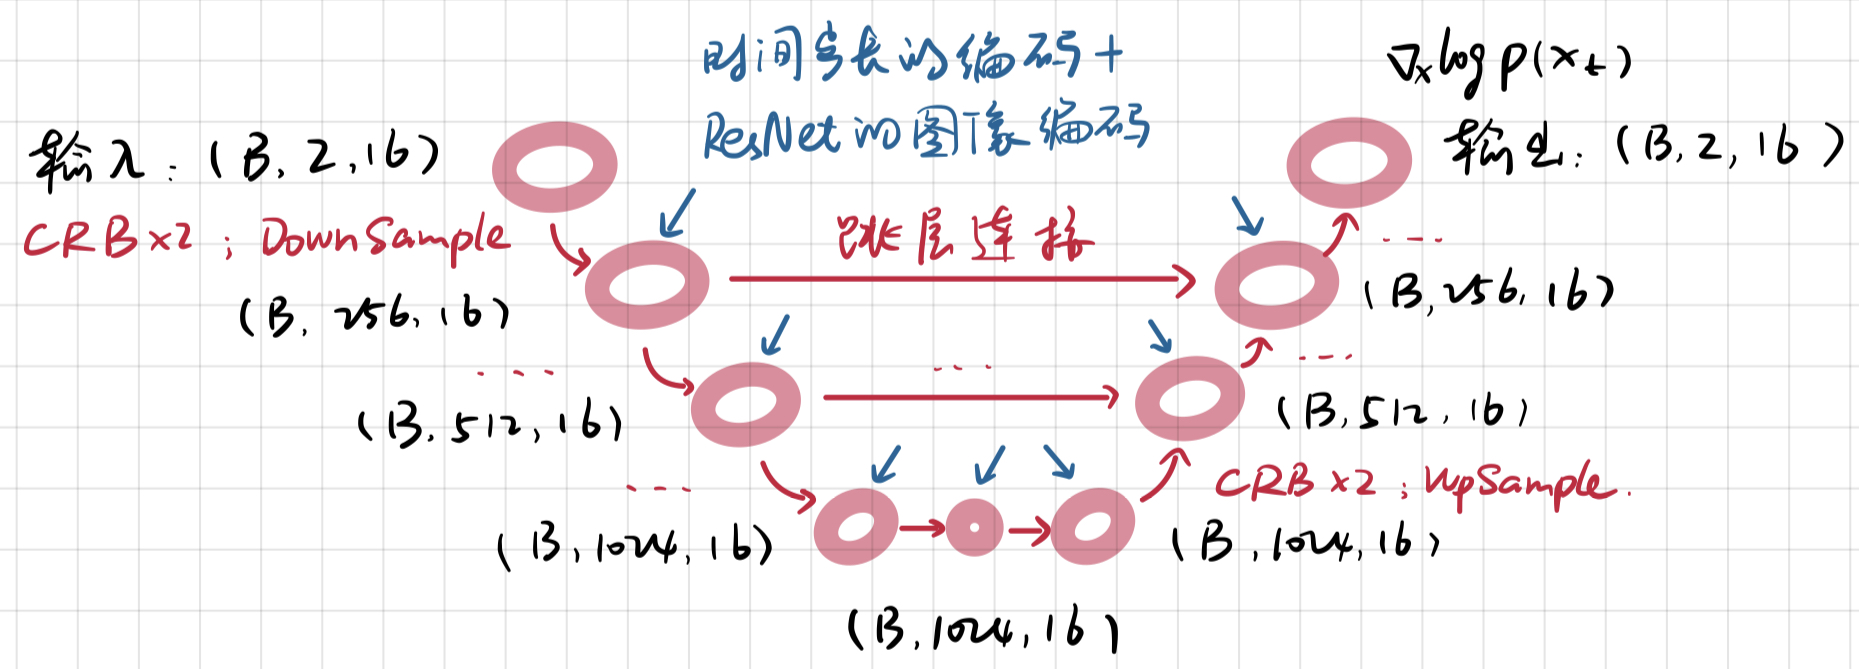 时间步长的编码+
ResNet的图像编码
∇ₓlog p(xₜ)
输入：(B, 2, 16)
输出：(B, 2, 16)
CRB×2 ; DownSample
跳层连接
...
(B, 256, 16)
(B, 256, 16)
...
...
...
(B, 512, 16)
(B, 512, 16)
...
CRB×2 ; UpSample.
(B, 1024, 16)
(B, 1024, 16)
(B, 1024, 16)